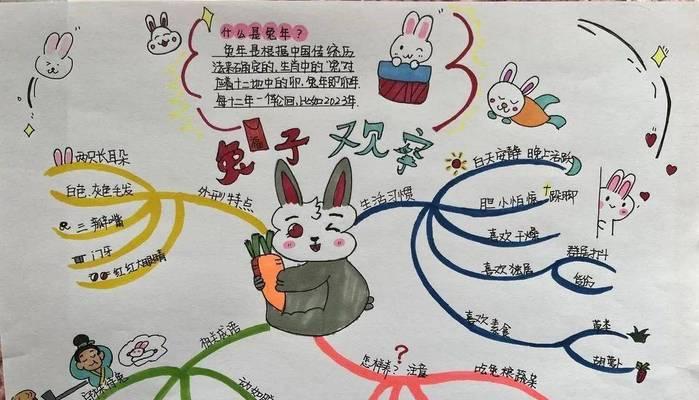 什么是兔年？
兔年是根据中国传统历
法来确定的，生肖中的“兔”对
应着十二地中的卯，兔年即卯年
每十二年一个轮回，比如2023年
兔子观察
福
外形特点
两只长耳朵
白色、灰色毛发
三瓣嘴
门牙
红红大眼睛
生活习惯
白天安静 晚上活跃
胆小怕惊 跺脚
喜欢干燥
喜欢独居
群居打斗
喜欢素食
青草
胡萝卜
相关成语
守株待兔
动如脱
怎样养？注意
吃兔粮蔬菜